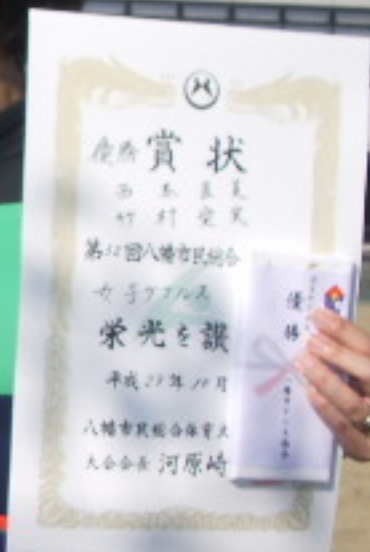 優勝 賞状
西本直美
竹村
第32回八幡市民総合
女子ダブルス
栄光を讃
平成29年10月
八幡市民総合体育大
大会会長 河原崎
優勝